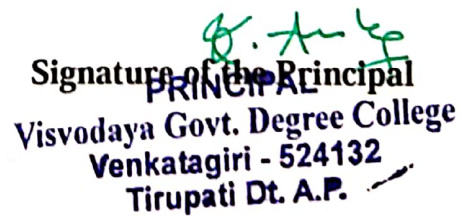 Signature of the Principal
PRINCIPAL
Visvodaya Govt. Degree College
Venkatagiri - 524132
Tirupati Dt. A.P.